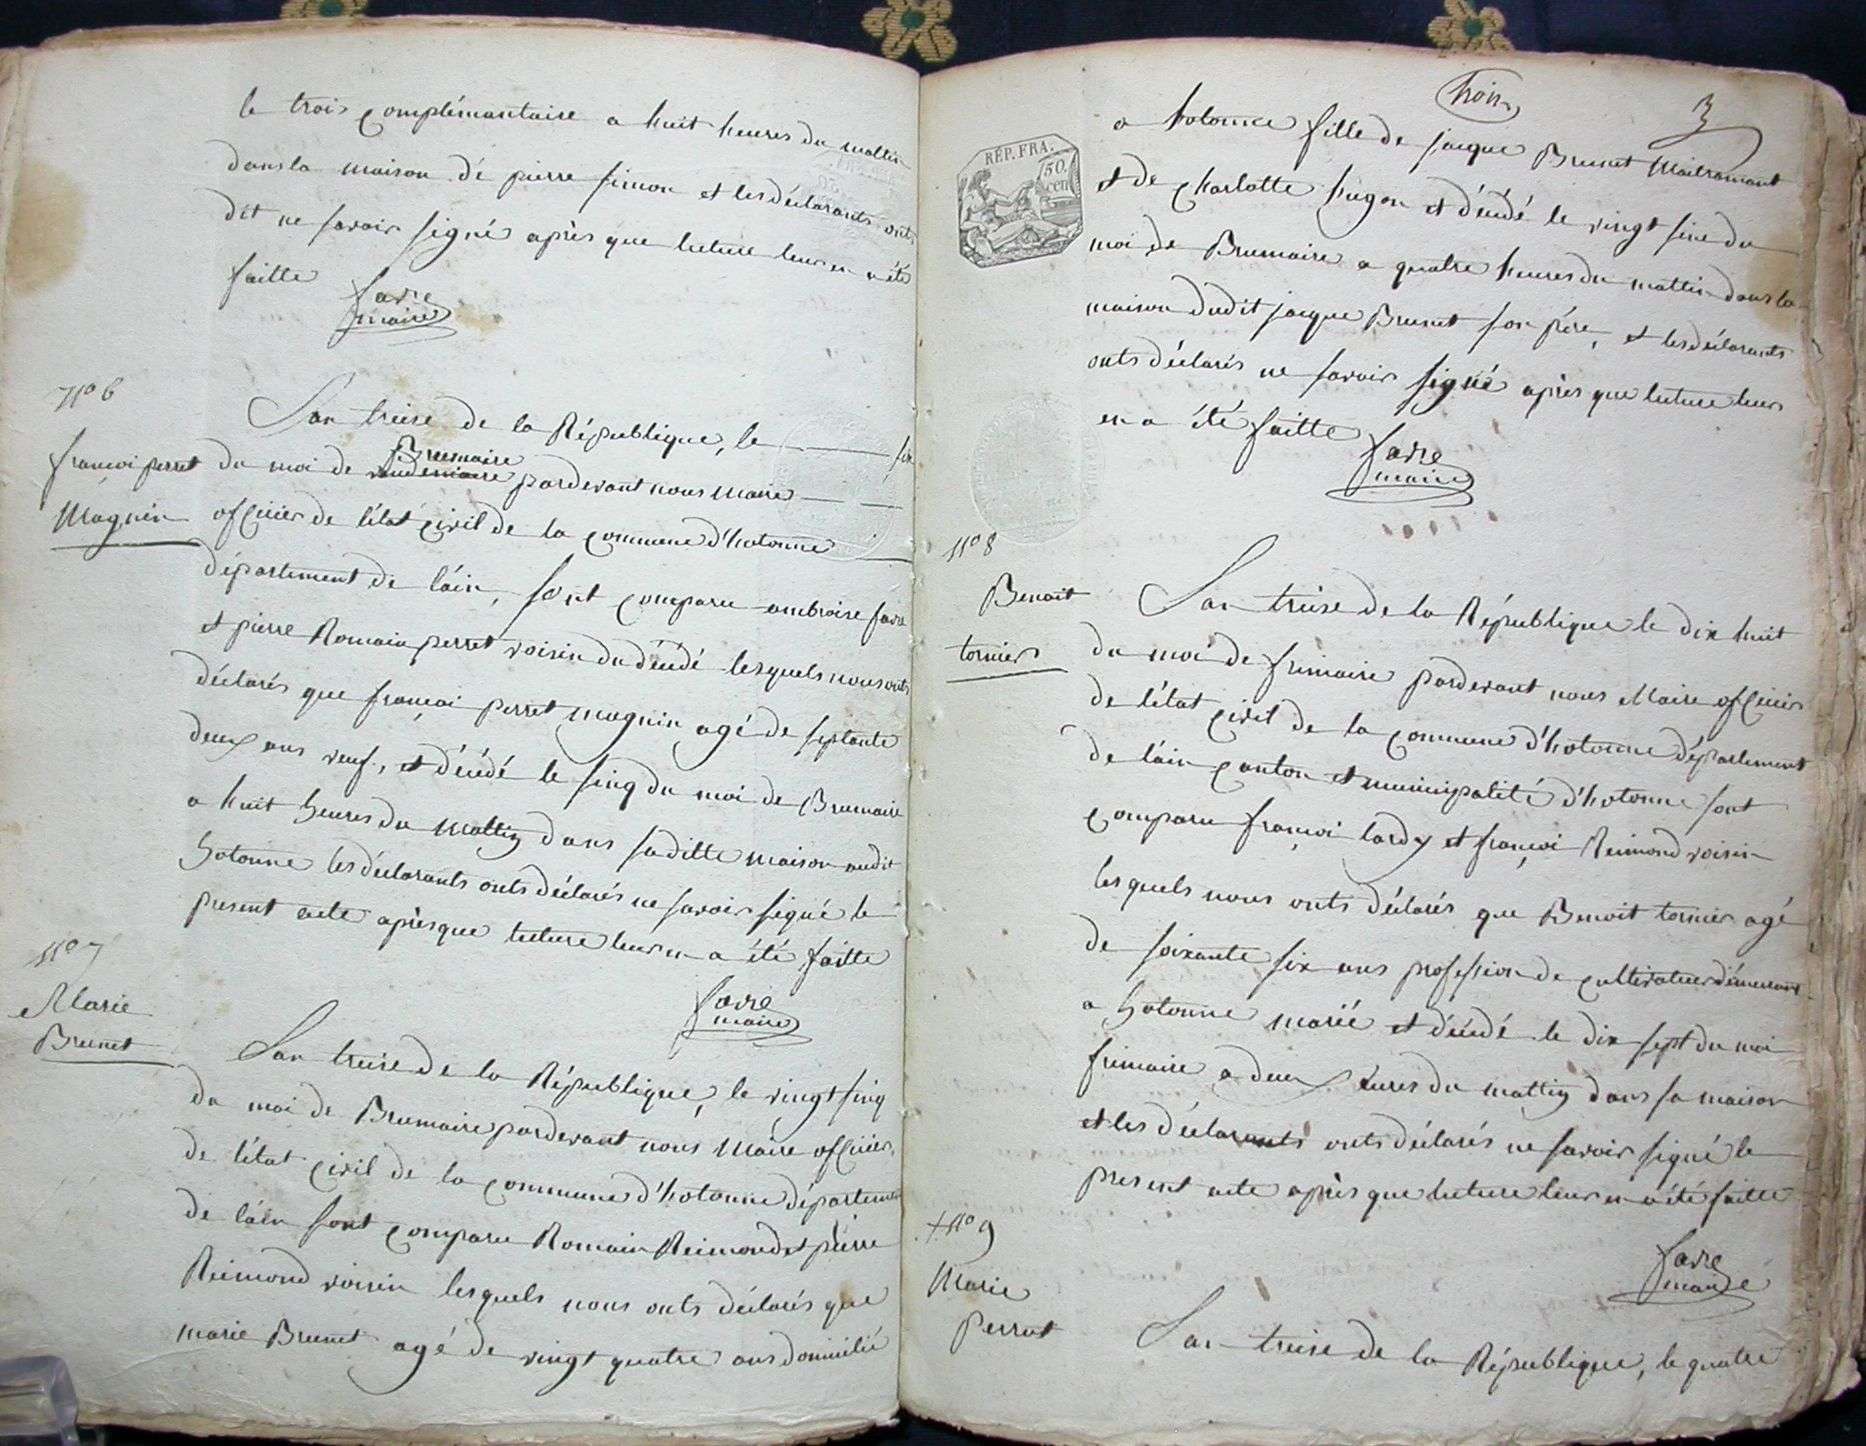 le trois complémentaire a huit heures du mattin
dans la maison dé pierre simon et les déclarants onts
dit ne savoir signé après que lecture leur en a été
faitte
favre
maire
N° 6
françoi perret
Magnin
Lan treise de la République, le six
du moi de Brumaire
vendemiaire pardevant nous maire
officier de létat civil de la commune d'hotonne
département de láin, sont comparu ambroise favre
et pierre Romain perret voisin du décédé lesquels nous onts
déclarés que françoi perret magnin agé de septante
deux ans veuf, et décédé le sinq du moi de Brumaire
a huit heures du mattin dans saditte maison audit
hotonne les déclarants onts déclarés ne savoir signé le
present acte après que lecture leur en a été faitte
favre
maire
N° 7
Marie
Brunet
Lan treise de la République, le vingt sinq
du moi de Brumaire pardevant nous Maire officier
de létat civil de la commune d'hotonne département
de láin sont comparu Romain Reimond et pierre
Reimond voisin lesquels nous onts déclarés que
marie Brunet agé de vingt quatre ans domicilié
trois
3
RÉP. FRA.
50
cen
a hotonne fille de jacque Brunet
et de charlotte hugon et décédé le vingt sinc du
moi de Brumaire a quatre heures du mattin dans la
maison dudit jacque Brunet son père, et les déclarants
onts déclarés ne savoir signé après que lecture leur
en a été faitte
favre
maire
N° 8
Benoit
tornier
Lan treise de la République le dix huit
du moi de frimaire pardevant nous Maire officier
de létat civil de la commune d'hotonne département
de láin canton et municipalité d'hotonne sont
comparu françoi lardy et françoi Reimond voisin
lesquels nous onts déclarés que Benoit tornier agé
de soixante six ans profession de cultivateur démeurant
a hotonne marié et décédé le dix sept du moi
frimaire a deux heures du mattin dans sa maison
et les déclarants onts déclarés ne savoir signé le
present acte après que lecture leur en a été faitte
favre
maire
+ N° 9
Marie
Perrut
Lan treise de la République, le quatre